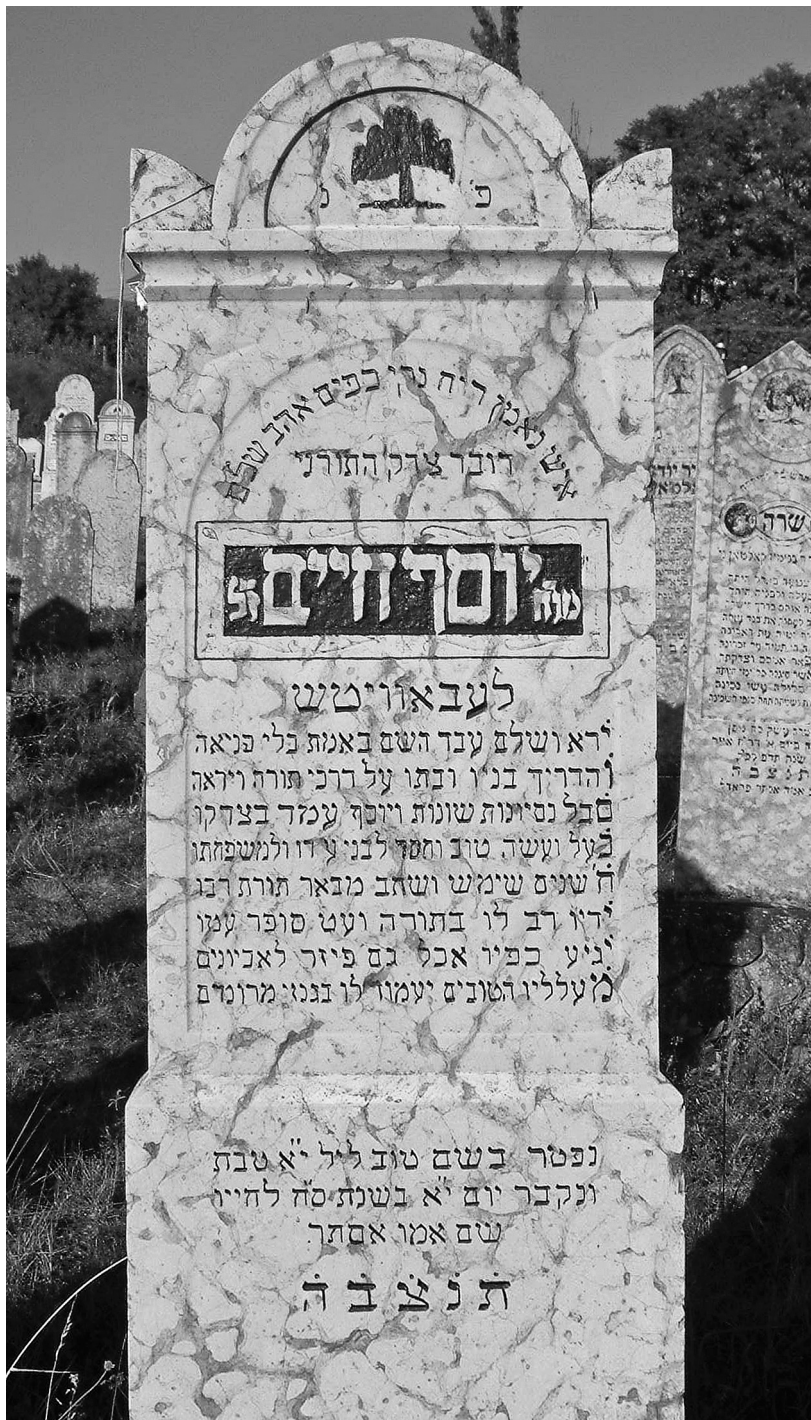 פ נ
איש נאמן רוח נקי כפים אהב שלם
דובר צדק התורני
מו״ה יוסף חיים ז״ל
לעבאוויטש
ירא ושלם עבד השם באמת בלי פניאה
והדריך בניו ובתו על דרכי תורה ויראה
סבל נסיונות שונות ויוסף עמד בצדקו
פעל ועשה טוב וחסד לבני עירו ולמשפחתו
ח שנים שימש ושאב מבאר תורת רבו
ידיו רב לו בתורה ועט סופר עטו
יגיע כפיו אכל גם פיזר לאביונים
מעלליו הטובים יעמוד לו בגנזי מרומים
נפטר בשם טוב ליל י״א טבת
ונקבר יום י״א בשנת ס״ח לחייו
שם אמו אסתר
ת נ צ ב ה
שרה
ת נ צ ב ה